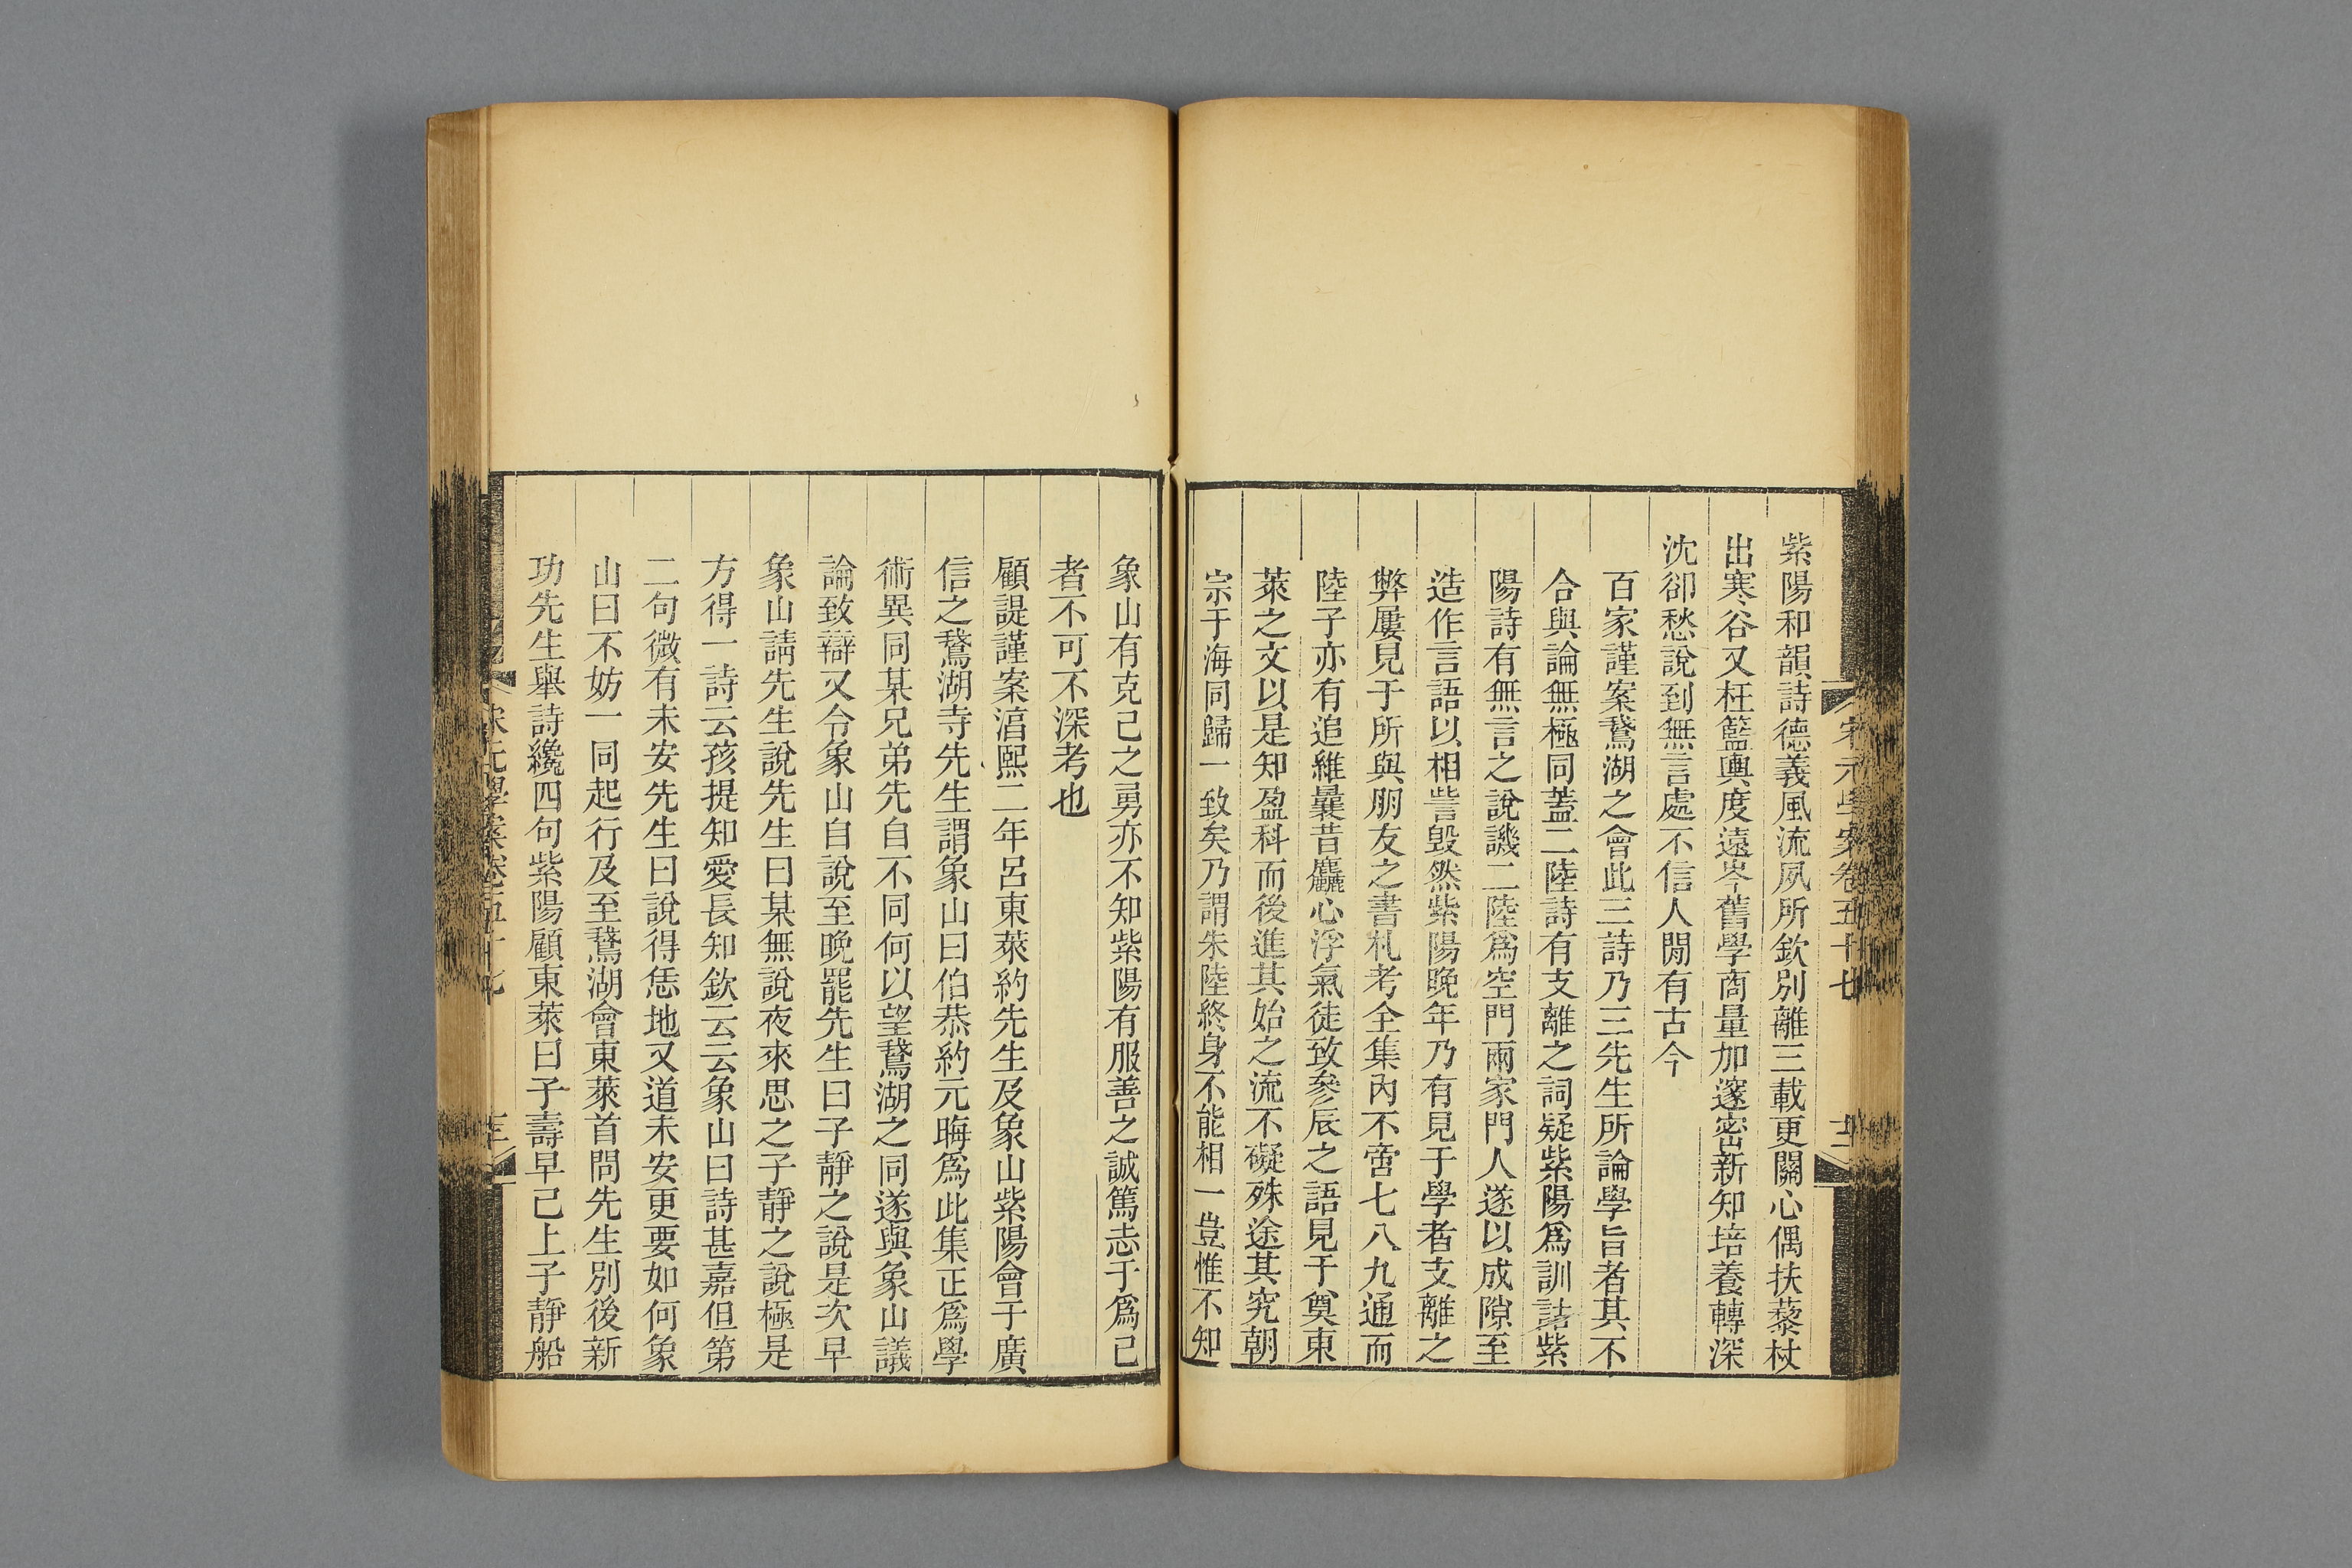 宋元學案卷五十七
十二
紫陽和韻詩德義風流夙所欽別離三載更關心偶扶藜杖
出寒谷又枉籃輿度遠岑舊學商量加邃密新知培養轉深
沈卻愁說到無言處不信人閒有古今
百家謹案鵞湖之會此三詩乃三先生所論學旨者其不
合與論無極同蓋二陸詩有支離之詞疑紫陽爲訓詁紫
陽詩有無言之說譏二陸爲空門兩家門人遂以成隙至
造作言語以相訾毀然紫陽晚年乃有見于學者支離之
弊屢見于所與朋友之書札考全集內不啻七八九通而
陸子亦有追維曩昔麤心浮氣徒致參辰之語見于奠東
萊之文以是知盈科而後進其始之流不礙殊途其究朝
宗于海同歸一致矣乃謂朱陸終身不能相一豈惟不知
象山有克己之勇亦不知紫陽有服善之誠篤志于爲己
者不可不深考也
顧諟謹案湻熙二年呂東萊約先生及象山紫陽會于廣
信之鵞湖寺先生謂象山曰伯恭約元晦爲此集正爲學
術異同某兄弟先自不同何以望鵞湖之同遂與象山議
論致辯又令象山自說至晚罷先生曰子靜之說是次早
象山請先生說先生曰某無說夜來思之子靜之說極是
方得一詩云孩提知愛長知欽云云象山曰詩甚嘉但第
二句微有未安先生曰說得恁地又道未安更要如何象
山曰不妨一同起行及至鵞湖會東萊首問先生別後新
功先生舉詩纔四句紫陽顧東萊曰子壽早已上子靜船
宋元學案卷五十七